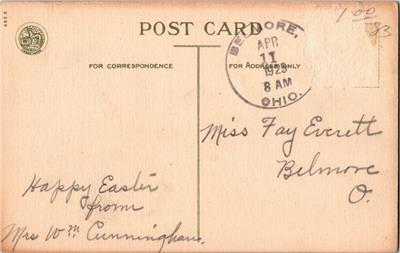 POST CARD
FOR CORRESPONDENCE
FOR ADDRESS ONLY
BELMORE,
APR
11
1925
8 AM
OHIO.
1.00
83
Miss Fay Everett
Belmore
O.
Happy Easter
from
Mrs Wm Cunningham.